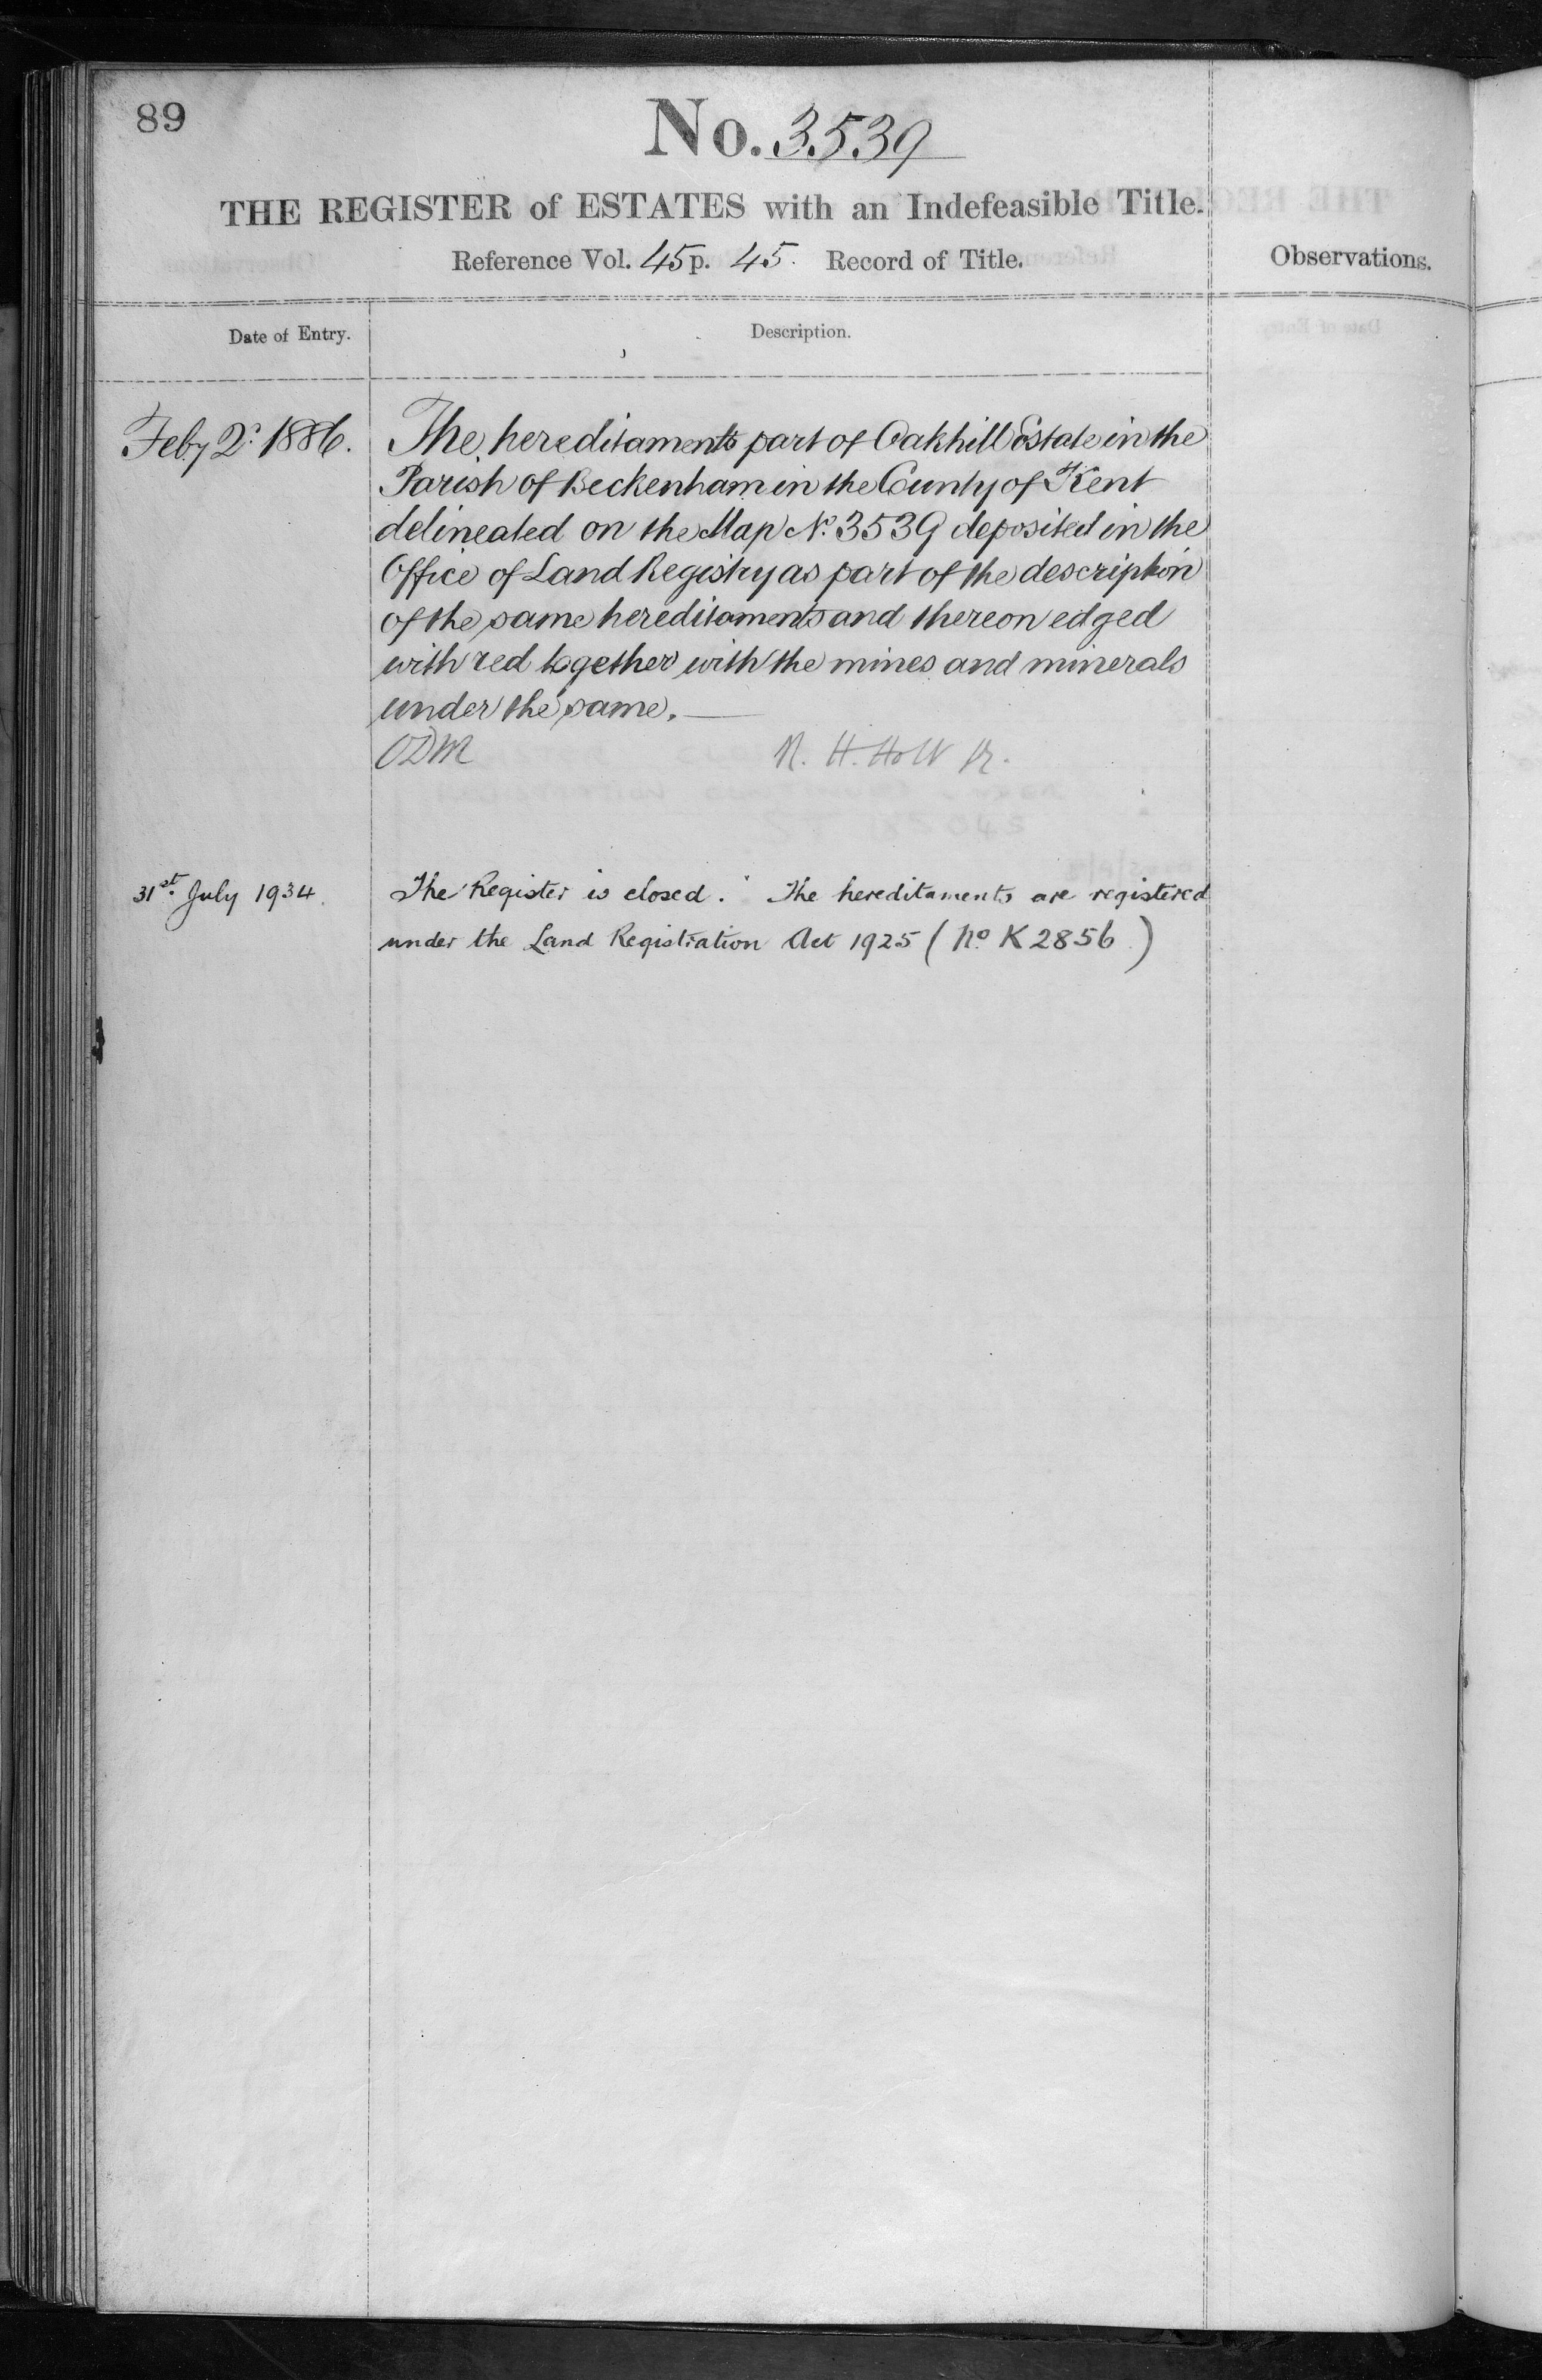 89
No. 3539
THE REGISTER of ESTATES with an Indefeasible Title.
Reference Vol. 45 p. 45. Record of Title.
Observations.
Date of Entry.
Description.
Feby 2d. 1886.
The hereditaments part of Oakhill Estate in the
Parish of Beckenham in the County of Kent
delineated on the Map No. 3539 deposited in the
Office of Land Registry as part of the description
of the same hereditaments and thereon edged
with red together with the mines and minerals
under the same.
ODM
R. H. Holt
31st. July 1934.
The Register is closed. The hereditaments are registered
under the Land Registration Act 1925 (No K 2856)